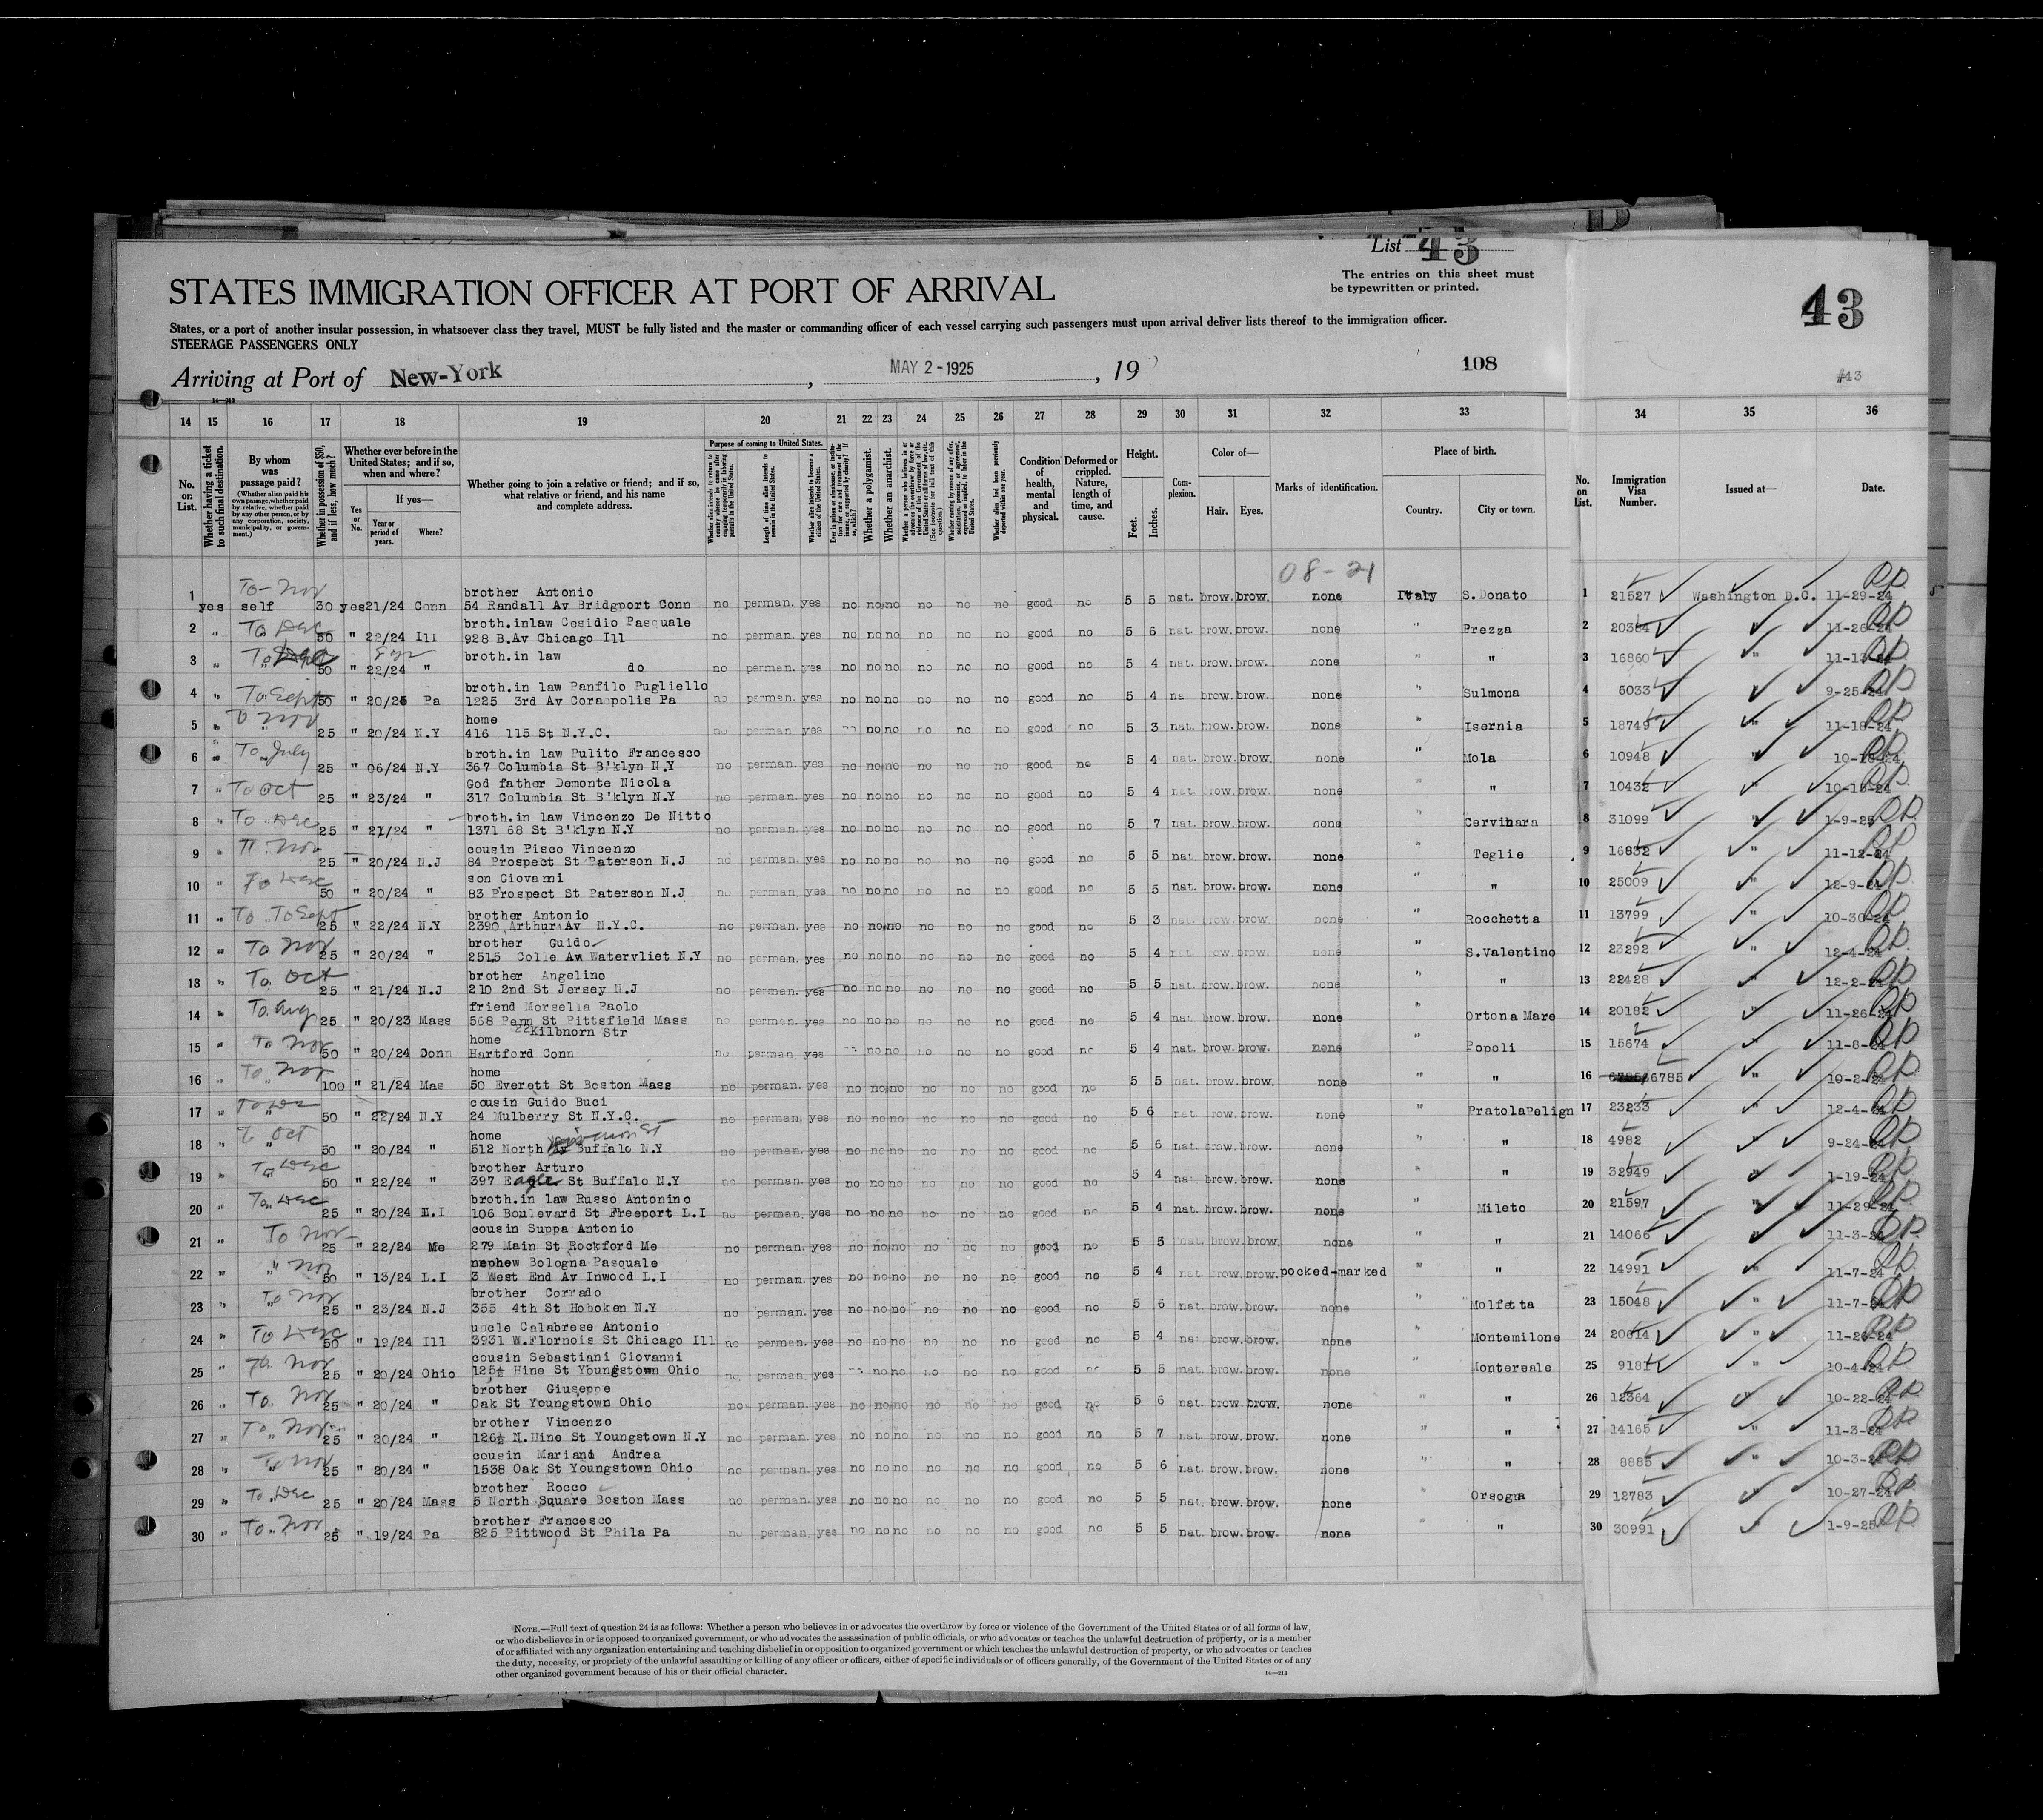 List 43
The entries on this sheet must
be typewritten or printed.
43
STATES IMMIGRATION OFFICER AT PORT OF ARRIVAL
States, or a port of another insular possession, in whatsoever class they travel, MUST be fully listed and the master or commanding officer of each vessel carrying such passengers must upon arrival deliver lists thereof to the immigration officer.
STEERAGE PASSENGERS ONLY
Arriving at Port of New-York, MAY 2-1925, 19
108
#43
14 15 16 17 18 19 20 21 22 23 24 25 26 27 28 29 30 31 32 33 34 35 36
No. on List.
Whether having a ticket to such final destination.
By whom was passage paid?
(Whether alien paid his own passage, whether paid by relative, whether paid by any other person, or by any corporation, society, municipality, or government.)
Whether in possession of $50, and if less, how much?
Whether ever before in the United States; and if so, when and where?
Yes or No.
If yes—
Year or period of years.
Where?
Whether going to join a relative or friend; and if so, what relative or friend, and his name and complete address.
Purpose of coming to United States.
Length of time alien intends to remain in the United States.
Whether alien intends to become a citizen of the United States.
Whether a polygamist.
Whether an anarchist.
Condition of health, mental and physical.
Deformed or crippled. Nature, length of time, and cause.
Height.
Feet.
Inches.
Complexion.
Color of—
Hair.
Eyes.
Marks of identification.
Place of birth.
Country.
City or town.
No. on List.
Immigration Visa Number.
Issued at—
Date.
08-21
To- Nov
brother Antonio
1 yes self 30 yes 21/24 Conn 54 Randall Av Bridgport Conn no perman. yes no no no no no no good no 5 5 nat. brow. brow. none Italy S.Donato 1 21527 Washington D.C. 11-29-24
broth.inlaw Cesidio Pasquale
2 " To Dec 50 " 22/24 Ill 928 B.Av Chicago Ill no perman. yes no no no no no no good no 5 6 nat. brow. brow. none " Prezza 2 20364 " 11-26-24
broth.in law
3 " 50 " 22/24 " do no perman. yes no no no no no no good no 5 4 nat. brow. brow. none " " 3 16860 "
broth.in law Panfilo Pugliello
4 " To Sept 50 " 20/25 Pa 1225 3rd Av Coraopolis Pa no perman. yes no no no no no no good no 5 4 brow. brow. none " Sulmona 4 5033 " 9-25-24
home
5 " To Nov 25 " 20/24 N.Y 416 115 St N.Y.C. no perman yes no no no no no good no 5 3 nat. brow. brow. none " Isernia 5 18749 " 11-18-24
broth.in law Pulito Francesco
6 " To July 25 " 06/24 N.Y 367 Columbia St B'klyn N.Y no perman. yes no no no no no no good no 5 4 nat. brow. brow. none " Mola 6 10948 "
God father Demonte Nicola
7 " To Oct 25 " 23/24 " 317 Columbia St B'klyn N.Y no perman. yes no no no no no no good no 5 4 nat. brow. brow. none " " 7 10432 " 10-15-24
broth.in law Vincenzo De Nitto
8 " To Dec 25 " 21/24 " 1371 68 St B'klyn N.Y no perman. yes no no no no no no good no 5 7 nat. brow. brow. none " Cervinara 8 31099 " 1-9-25
cousin Pisco Vincenzo
9 " Nov 25 " 20/24 N.J 84 Prospect St Paterson N.J no perman. yes no no no no no no good no 5 5 nat. brow. brow. none " Teglie 9 16832 " 11-12-24
son Giovanni
10 " To Dec 50 " 20/24 " 83 Prospect St Paterson N.J no perman. yes no no no no no no good no 5 5 nat. brow. brow. none " " 10 25009 " 12-9-24
brother Antonio
11 " To Sept 25 " 22/24 N.Y 2390 Arthur Av N.Y.C. no perman. yes no no no no no no good no 5 3 nat. brow. brow. none " Rocchetta 11 13799 " 10-30-24
brother Guido
12 " To Nov 25 " 20/24 " 2515 Colle Av Watervliet N.Y no perman. yes no no no no no no good no 5 4 nat. brow. brow. none " S.Valentino 12 23292 " 12-4-24
brother Angelino
13 " To Oct 25 " 21/24 N.J 210 2nd St Jersey N.J no perman. yes no no no no no no good no 5 5 nat. brow. brow. none " " 13 22428 " 12-2-24
friend Morsella Paolo
14 " To Aug 25 " 20/23 Mass 568 Penn St Pittsfield Mass no perman. yes no no no no no no good no 5 4 nat. brow. brow. none " Ortona Mare 14 20182 " 11-26-24
22 Kilbnorn Str
home
15 " To Nov 50 " 20/24 Conn Hartford Conn no perman. yes no no no no no good no 5 4 nat. brow. brow. none " Popoli 15 15674 " 11-8-24
home
16 " To Nov 100 " 21/24 Mas 50 Everett St Boston Mass no perman. yes no no no no no no good no 5 5 nat. brow. brow. none " " 16 6785 " 10-2-24
cousin Guido Buci
17 " 50 " 22/24 N.Y 24 Mulberry St N.Y.C. no perman. yes no no no no no no good no 5 6 nat. brow. brow. none " PratolaPelign 17 23233 " 12-4-24
home
18 " Oct 50 " 20/24 " 512 North Buffalo N.Y no perman. yes no no no no no no good no 5 6 nat. brow. brow. none " " 18 4982 " 9-24-24
brother Arturo
19 " To Dec 50 " 22/24 " 397 Eagle St Buffalo N.Y no perman. yes no no no no no no good no 5 4 nat. brow. brow. none " " 19 32949 " 1-19-24
broth.in law Russo Antonino
20 " To Dec 25 " 20/24 L.I 106 Boulevard St Freeport L.I no perman. yes no no no no no no good no 5 4 nat. brow. brow. none " Mileto 20 21597 " 11-29-24
cousin Suppa Antonio
21 " To Nov 25 " 22/24 Me 279 Main St Rockford Me no perman. yes no no no no no no good no 5 5 nat. brow. brow. none " " 21 14066 " 11-3-24
nephew Bologna Pasquale
22 " " Nov 50 " 13/24 L.I 3 West End Av Inwood L.I no perman. yes no no no no no no good no 5 4 nat. brow. brow. pocked-marked " " 22 14991 " 11-7-24
brother Corrado
23 " To Nov 25 " 23/24 N.J 355 4th St Hoboken N.Y no perman. yes no no no no no no good no 5 6 nat. brow. brow. none " Molfetta 23 15048 " 11-7-24
uncle Calabrese Antonio
24 " To Dec 50 " 19/24 Ill 3931 W.Flornois St Chicago Ill no perman. yes no no no no no no good no 5 4 nat. brow. brow. none " Montemilone 24 20614 " 11-26-24
cousin Sebastiani Giovanni
25 " To Nov 25 " 20/24 Ohio 125½ Hine St Youngstown Ohio no perman. yes no no no no no good no 5 5 nat. brow. brow. none " Montereale 25 " 10-4-24
brother Giuseppe
26 " To Nov 25 " 20/24 " Oak St Youngstown Ohio no perman. yes no no no no no no good no 5 6 nat. brow. brow. none " " 26 12364 " 10-22-24
brother Vincenzo
27 " To Nov 25 " 20/24 " 126½ N.Hine St Youngstown N.Y no perman. yes no no no no no no good no 5 7 nat. brow. brow. none " " 27 14165 " 11-3-24
cousin Mariani Andrea
28 " To Nov 25 " 20/24 " 1538 Oak St Youngstown Ohio no perman. yes no no no no no no good no 5 6 nat. brow. brow. none " " 28 8885 " 10-3-24
brother Rocco
29 " To Dec 25 " 20/24 Mass 5 North Square Boston Mass no perman. yes no no no no no no good no 5 5 nat. brow. brow. none " Orsogna 29 12783 " 10-27-24
brother Francesco
30 " To Nov 25 " 19/24 Pa 825 Pittwood St Phila Pa no perman. yes no no no no no no good no 5 5 nat. brow. brow. none " " 30 30991 " 1-9-25
NOTE.—Full text of question 24 is as follows: Whether a person who believes in or advocates the overthrow by force or violence of the Government of the United States or of all forms of law,
or who disbelieves in or is opposed to organized government, or who advocates the assassination of public officials, or who advocates or teaches the unlawful destruction of property, or is a member
of or affiliated with any organization entertaining and teaching disbelief in or opposition to organized government or which teaches the unlawful destruction of property, or who advocates or teaches
the duty, necessity, or propriety of the unlawful assaulting or killing of any officer or officers, either of specific individuals or of officers generally, of the Government of the United States or of any
other organized government because of his or their official character.
14—213